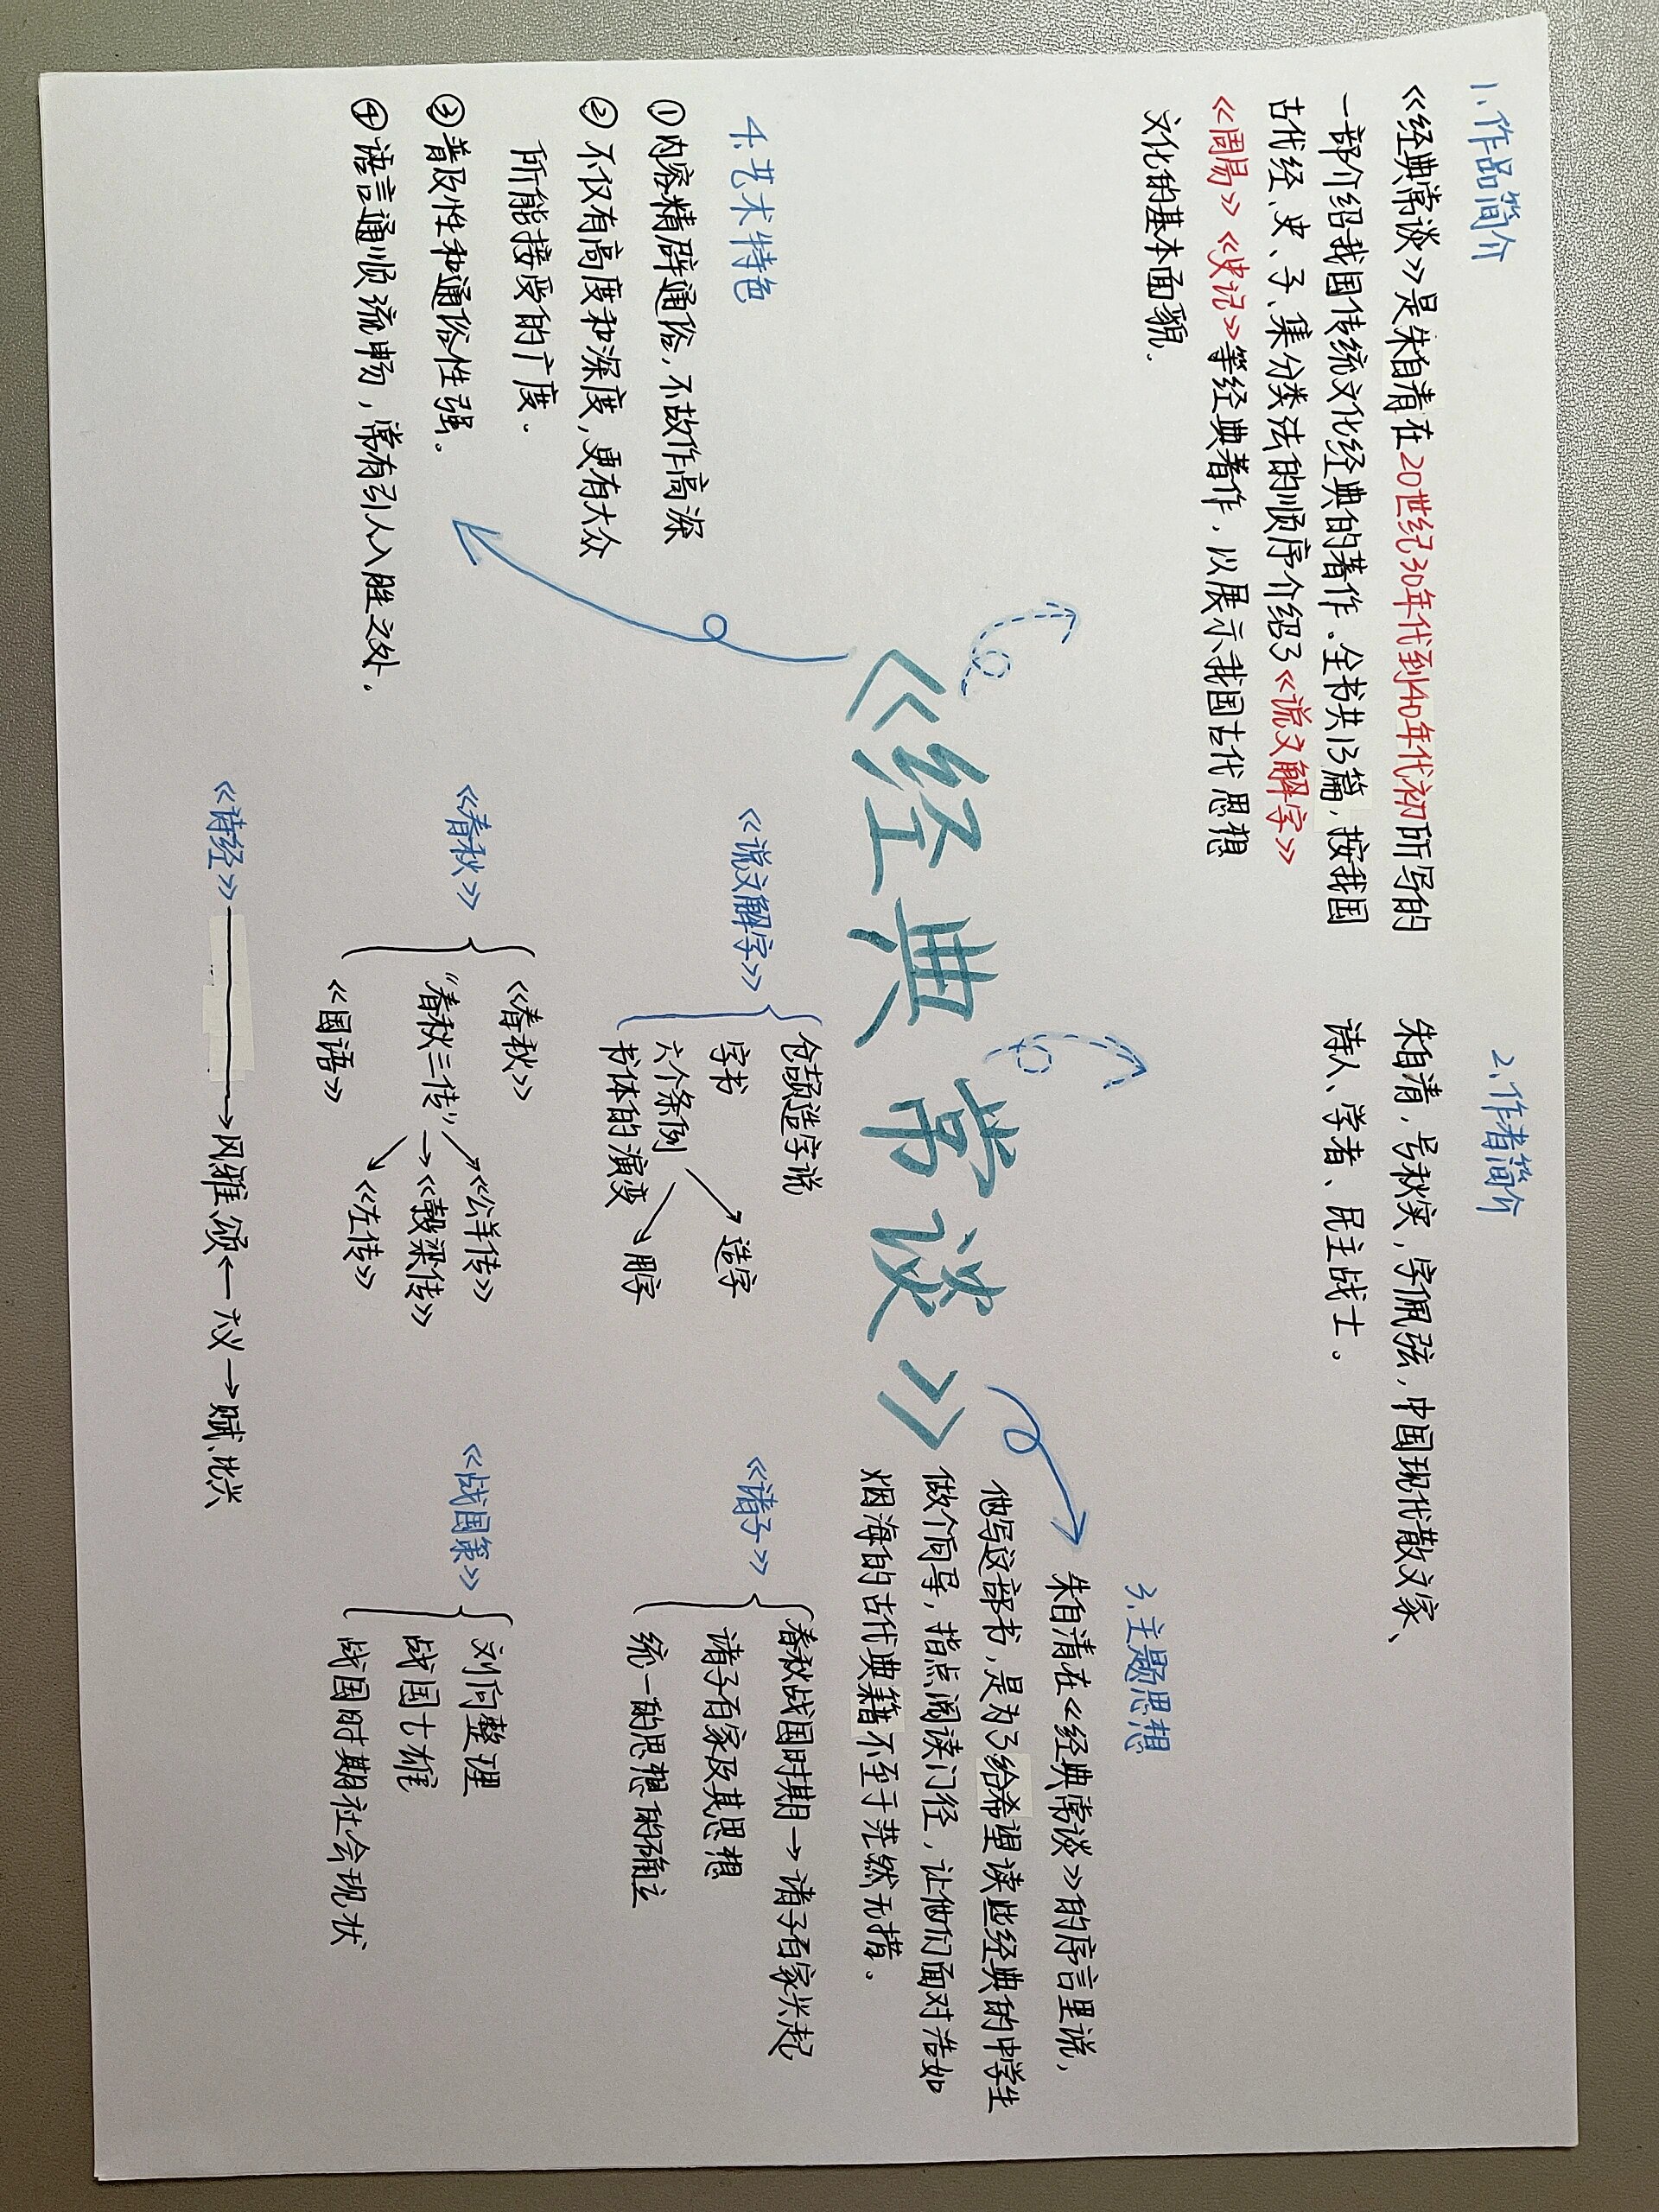 1.作品简介
《经典常谈》是朱自清在20世纪30年代到40年代初所写的
一部介绍我国传统文化经典的著作。全书共13篇,按我国
古代经、史、子、集分类法的顺序介绍了《说文解字》
《周易》《史记》等经典著作,以展示我国古代思想
文化的基本面貌.
2.作者简介
朱自清,号秋实,字佩弦,中国现代散文家、
诗人、学者、民主战士。
《经典常谈》
3.主题思想
朱自清在《经典常谈》的序言里说,
他写这部书,是为了给希望读些经典的中学生
做个向导,指点阅读门径,让他们面对浩如
烟海的古代典籍不至于茫然无措。
4.艺术特色
①内容精辟通俗,不故作高深
②不仅有高度和深度,更有大众
所能接受的广度.
③普及性和通俗性强。
④语言通顺流畅,常有引人入胜之处.
《说文解字》
仓颉造字说
字书
六个条例
造字
用字
书体的演变
《诸子》
春秋战国时期→诸子百家兴起
诸子百家及其思想
统一的思想的确立
《春秋》
《春秋》
“春秋三传”
《公羊传》
→《榖梁传》
《左传》
《国语》
《战国策》
刘向整理
战国七雄
战国时期社会现状
《诗经》→风雅、颂←六义→赋、比兴